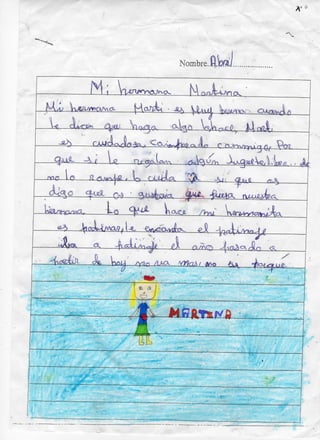 Nombre: Abril
Mi hermana Martina
Mi hermana Marti es Muy buena cuando
le dicen que haga algo lo hace, Marti
es cuidadosa, conmigo, Por
que si le regalan algún Juguete, libro... de
no lo rompe, lo cuida si que os
digo que os gustaria que fuera vuestra
hermana Lo que hace mi hermanita
es patinar, le encanta el patinaje
iba a patinaje el año pasado a
partir de hoy no va mas, no se porque
MARTINA